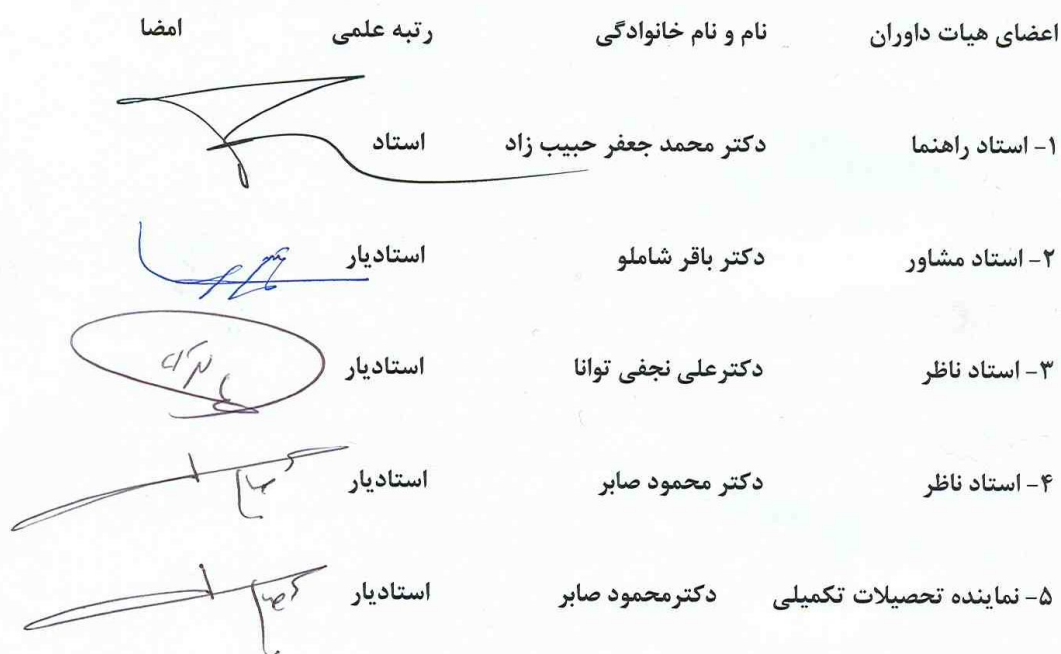 اعضای هیات داوران نام و نام خانوادگی رتبه علمی امضا
۱- استاد راهنما دکتر محمد جعفر حبیب زاد استاد
۲- استاد مشاور دکتر باقر شاملو استادیار
۳- استاد ناظر دکترعلی نجفی توانا استادیار
۴- استاد ناظر دکتر محمود صابر استادیار
۵- نماینده تحصیلات تکمیلی دکترمحمود صابر استادیار